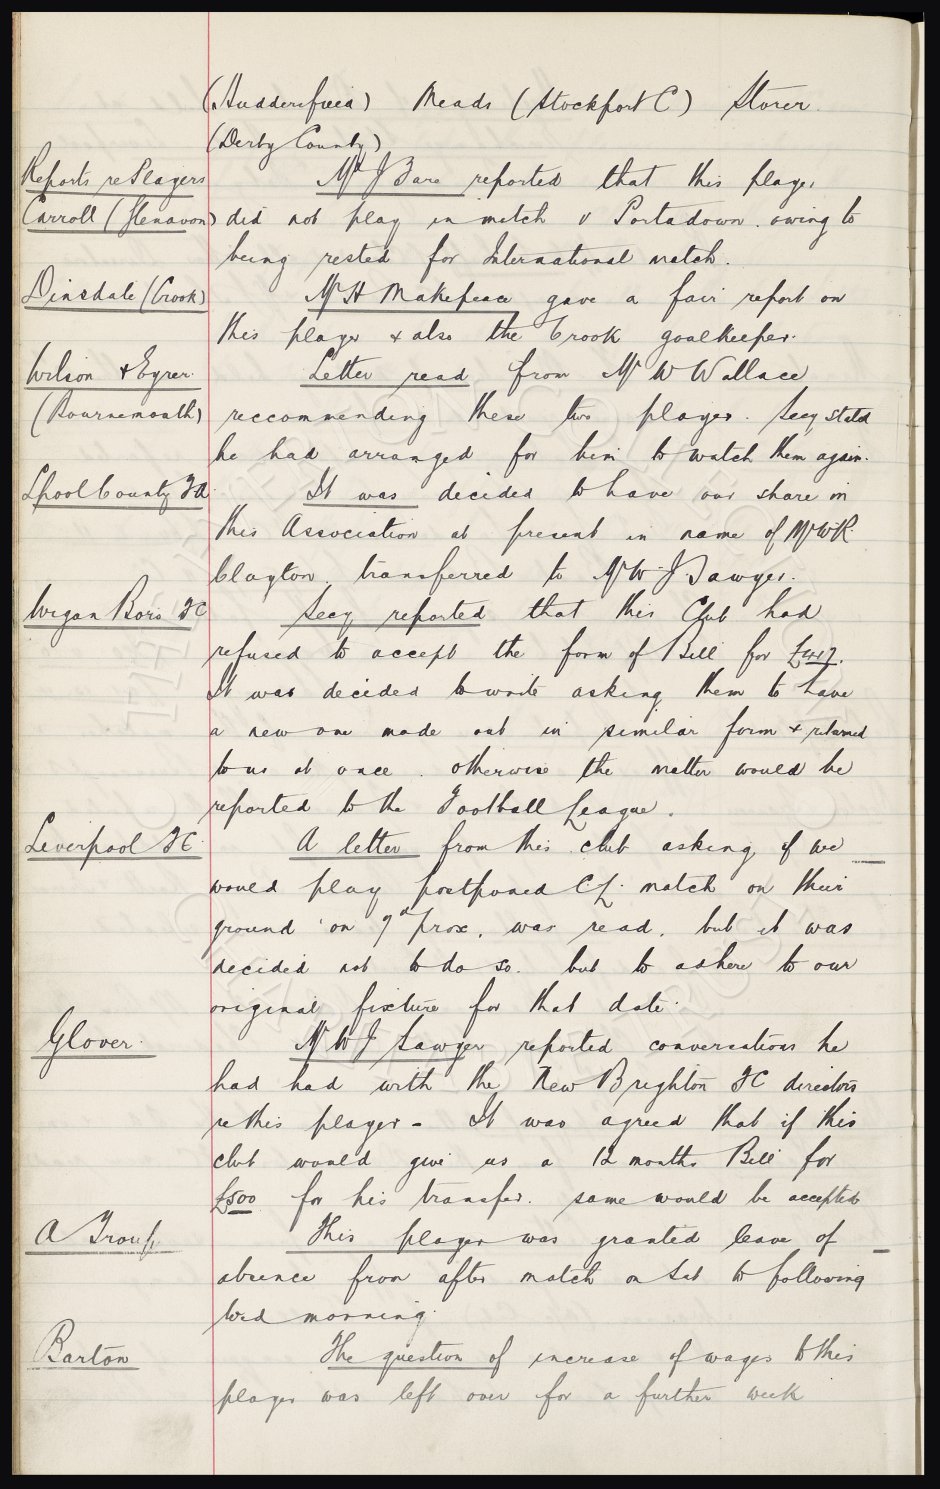 (Huddersfield) Meads (Stockport C) Storer
(Derby County)
Reports re Players
Mr J Bare reported that this player
Carroll (Glenavon) did not play in match v Portadown owing to
being rested for International match.
Dinsdale (Crook)
Mr H Makepeace gave a fair report on
this player & also the Crook goalkeeper.
Wilson & Eyrer
Letter read from Mr W Wallace
(Bournemouth) reccommending these two players. Secy stated
he had arranged for him to watch them again.
Lpool County FA
It was decided to have our share in
this Association at present in name of Mr W R
Clayton, transferred to Mr W J Sawyer.
Wigan Boro FC
Secy reported that this Club had
refused to accept the form of Bill for £417.
It was decided to write asking them to have
a new one made out in similar form & returned
to us at once. otherwise the matter would be
reported to the Football League.
Liverpool FC
A letter from this club asking if we
would play postponed CL match on their
ground on 7th prox, was read, but it was
decided not to do so. but to adhere to our
original fixture for that date.
Glover.
Mr W J Sawyer reported conversations he
had had with the New Brighton FC directors
re this player - It was agreed that if this
club would give us a 12 months Bill for
£500 for his transfer. same would be accepted
A Troup
This player was granted leave of
absence from after match on Sat to following
Wed morning.
Barton
The question of increase of wages to this
player was left over for a further week